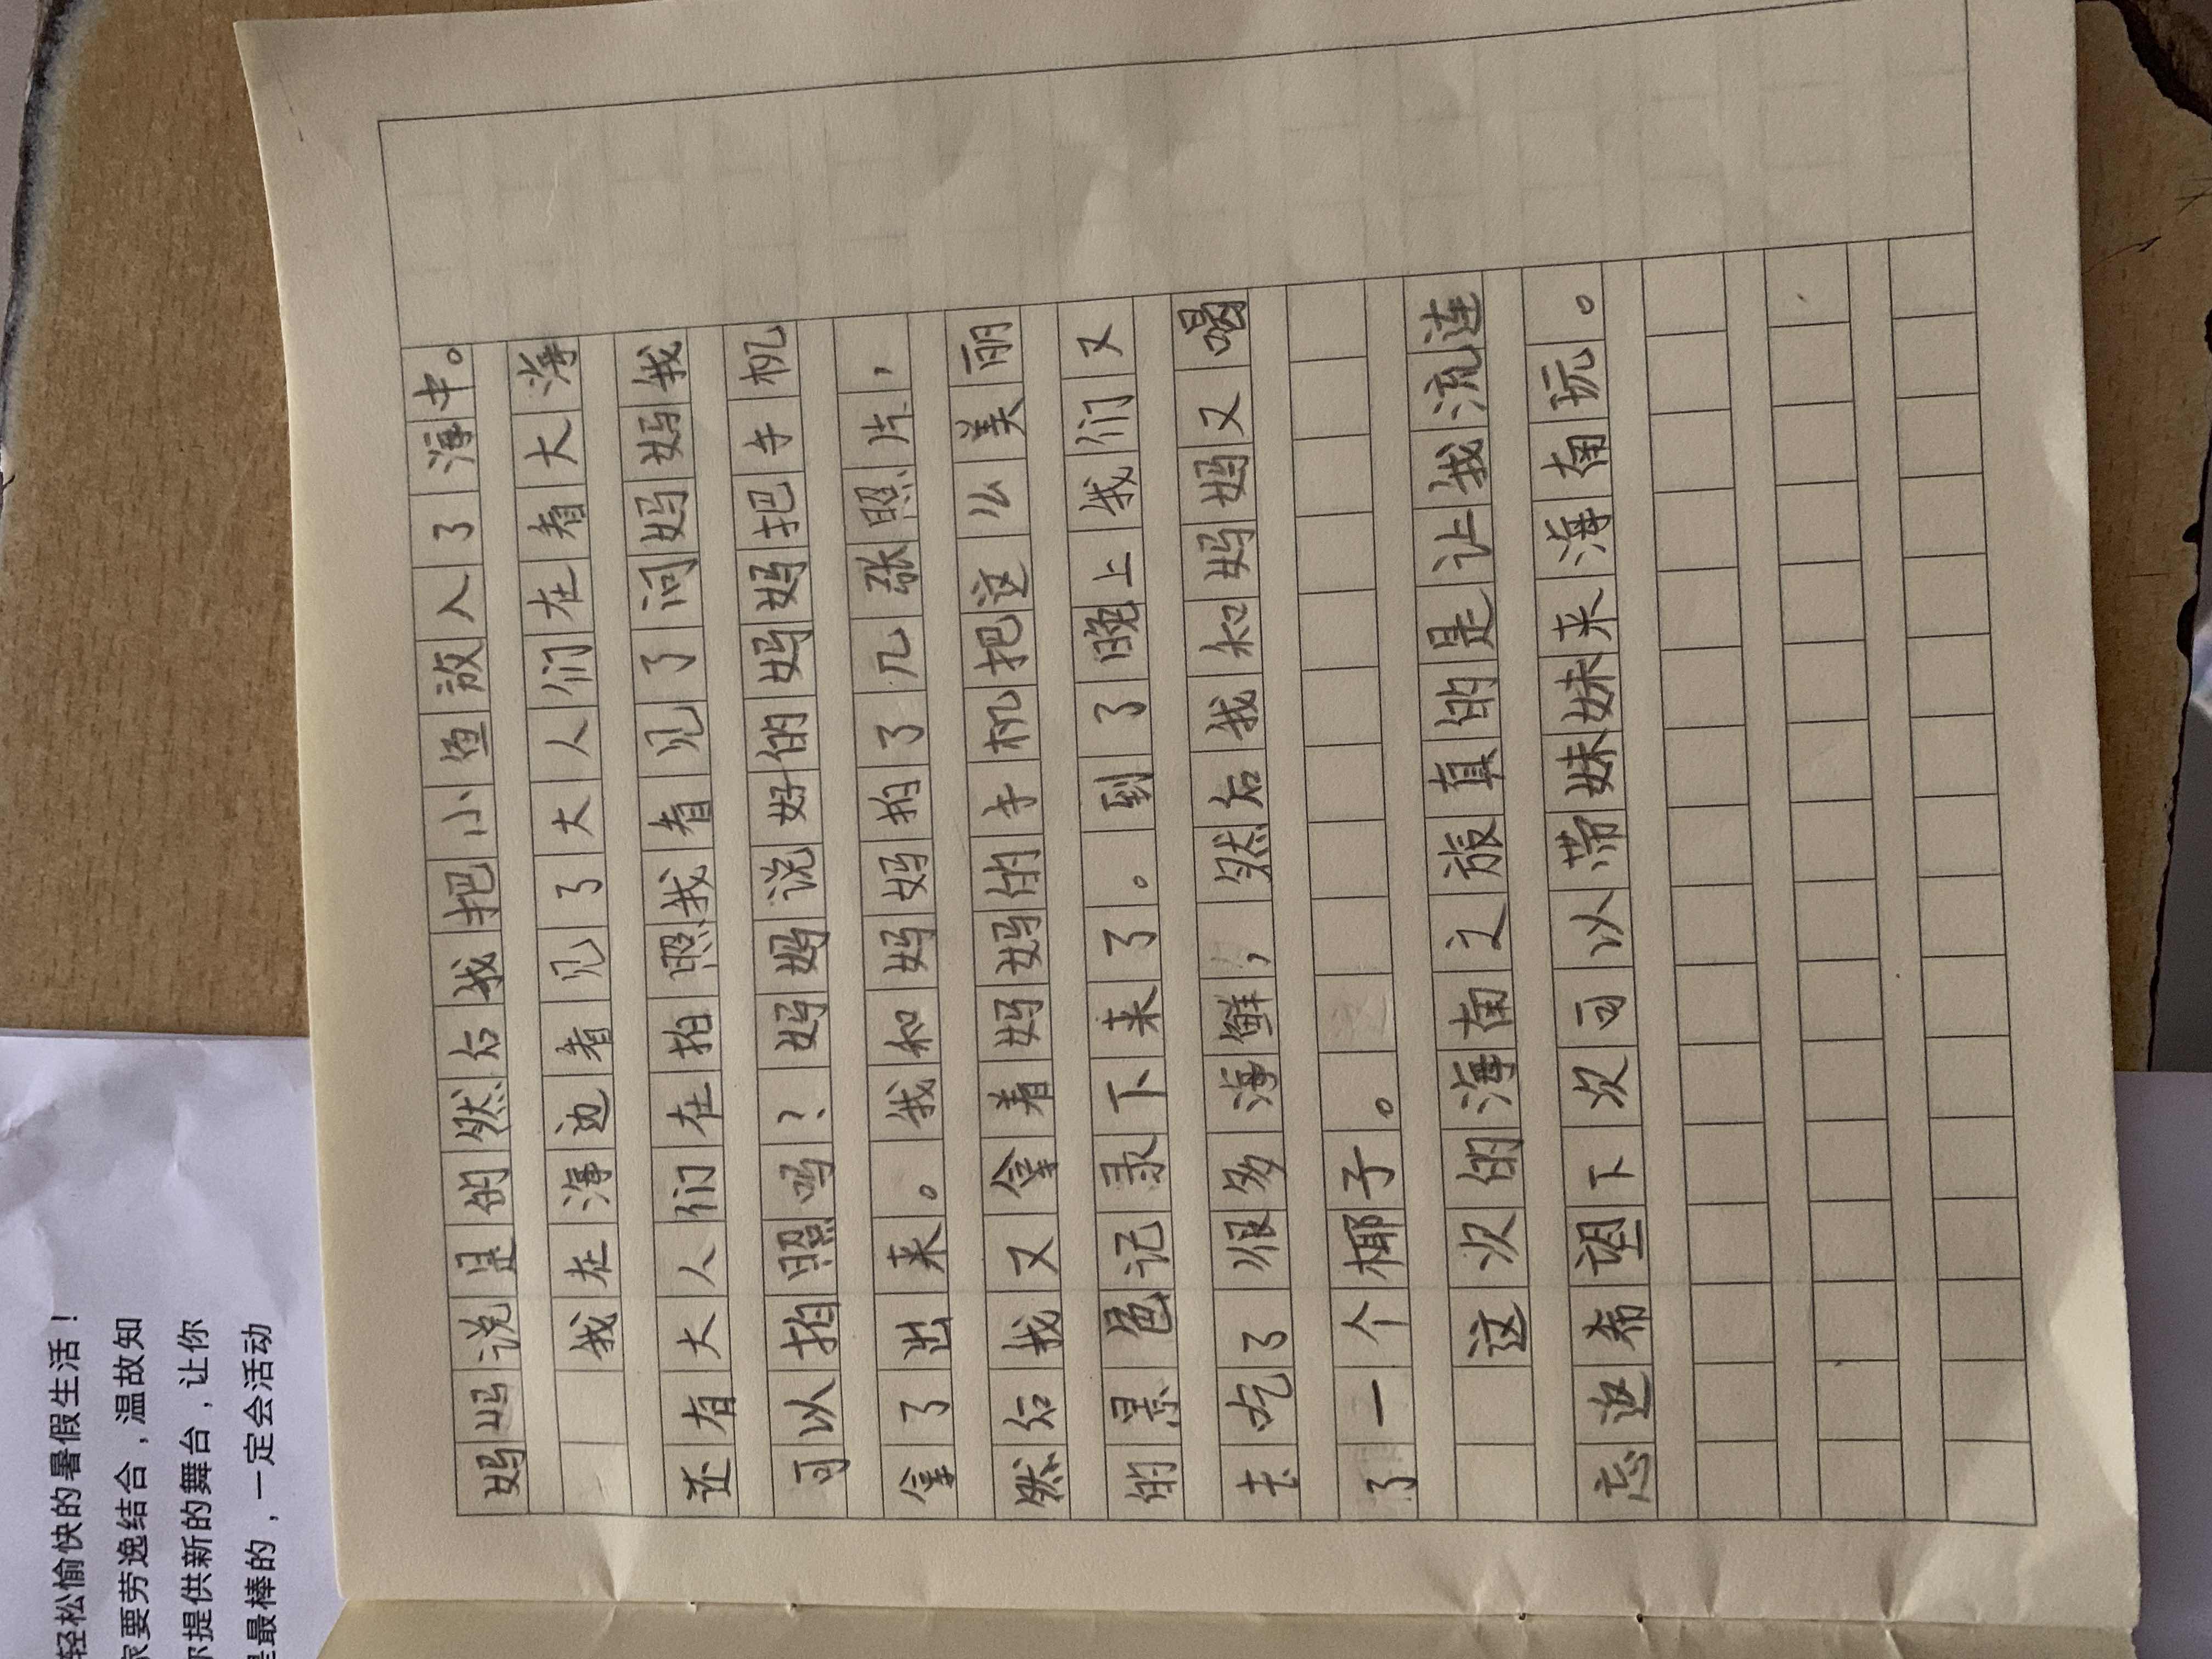 妈妈说是的然后我把小鱼放入了海中。
我在海边看见了大人们在看大海
还有大人们在拍照我看见了问妈妈我
可以拍照吗?妈妈说好的妈妈把手机
拿了出来。我和妈妈拍了几张照片,
然后我又拿着妈妈的手机把这么美丽
的景色记录下来了。到了晚上我们又
去吃了很多海鲜,然后我和妈妈又喝
了一个椰子。
这次的海南之旅真的是让我流连
忘返希望下次可以带妹妹来海南玩。
轻松愉快的暑假生活!
家要劳逸结合,温故知
你提供新的舞台,让你
是最棒的,一定会活动